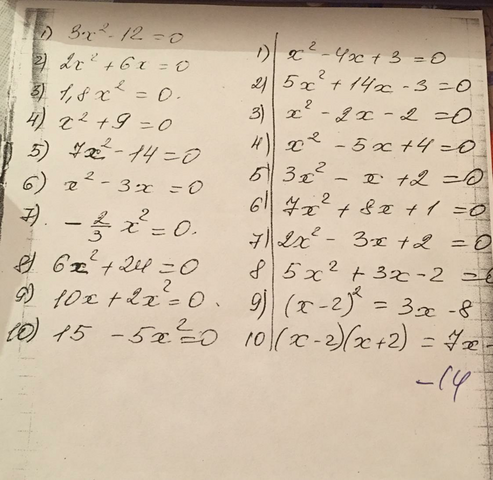 1) 3x² - 12 = 0
2) 2x² + 6x = 0
3) 1,8x² = 0.
4) x² + 9 = 0
5) 7x² - 14 = 0
6) x² - 3x = 0
7) - 2/3 x² = 0.
8) 6x² + 24 = 0
9) 10x + 2x² = 0.
10) 15 - 5x² = 0
1) x² - 4x + 3 = 0
2) 5x² + 14x - 3 = 0
3) x² - 2x - 2 = 0
4) x² - 5x + 4 = 0
5) 3x² - x + 2 = 0
6) 7x² + 8x + 1 = 0
7) 2x² - 3x + 2 = 0
8 5x² + 3x - 2 = 0
9) (x-2)² = 3x - 8
10 (x-2)(x+2) = 7x -
-14